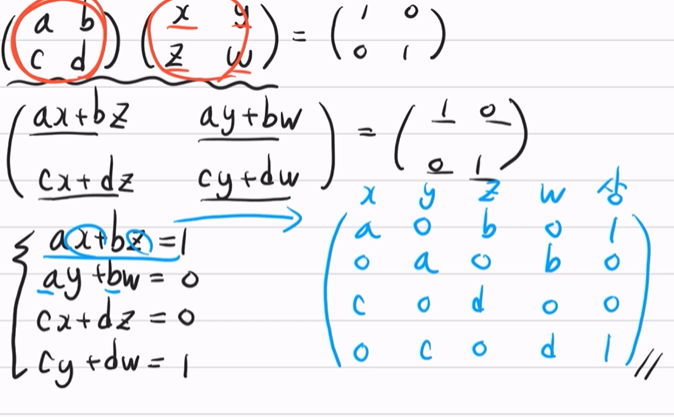 (a b) (x y) = (1 0)
(c d) (z w) (0 1)
(ax+bz ay+bw) = (1 0)
(cx+dz cy+dw) (0 1)
{ ax+bz=1
ay+bw=0
cx+dz=0
cy+dw=1
x y z w 상
(a 0 b 0 1)
(0 a 0 b 0)
(c 0 d 0 0)
(0 c 0 d 1) //